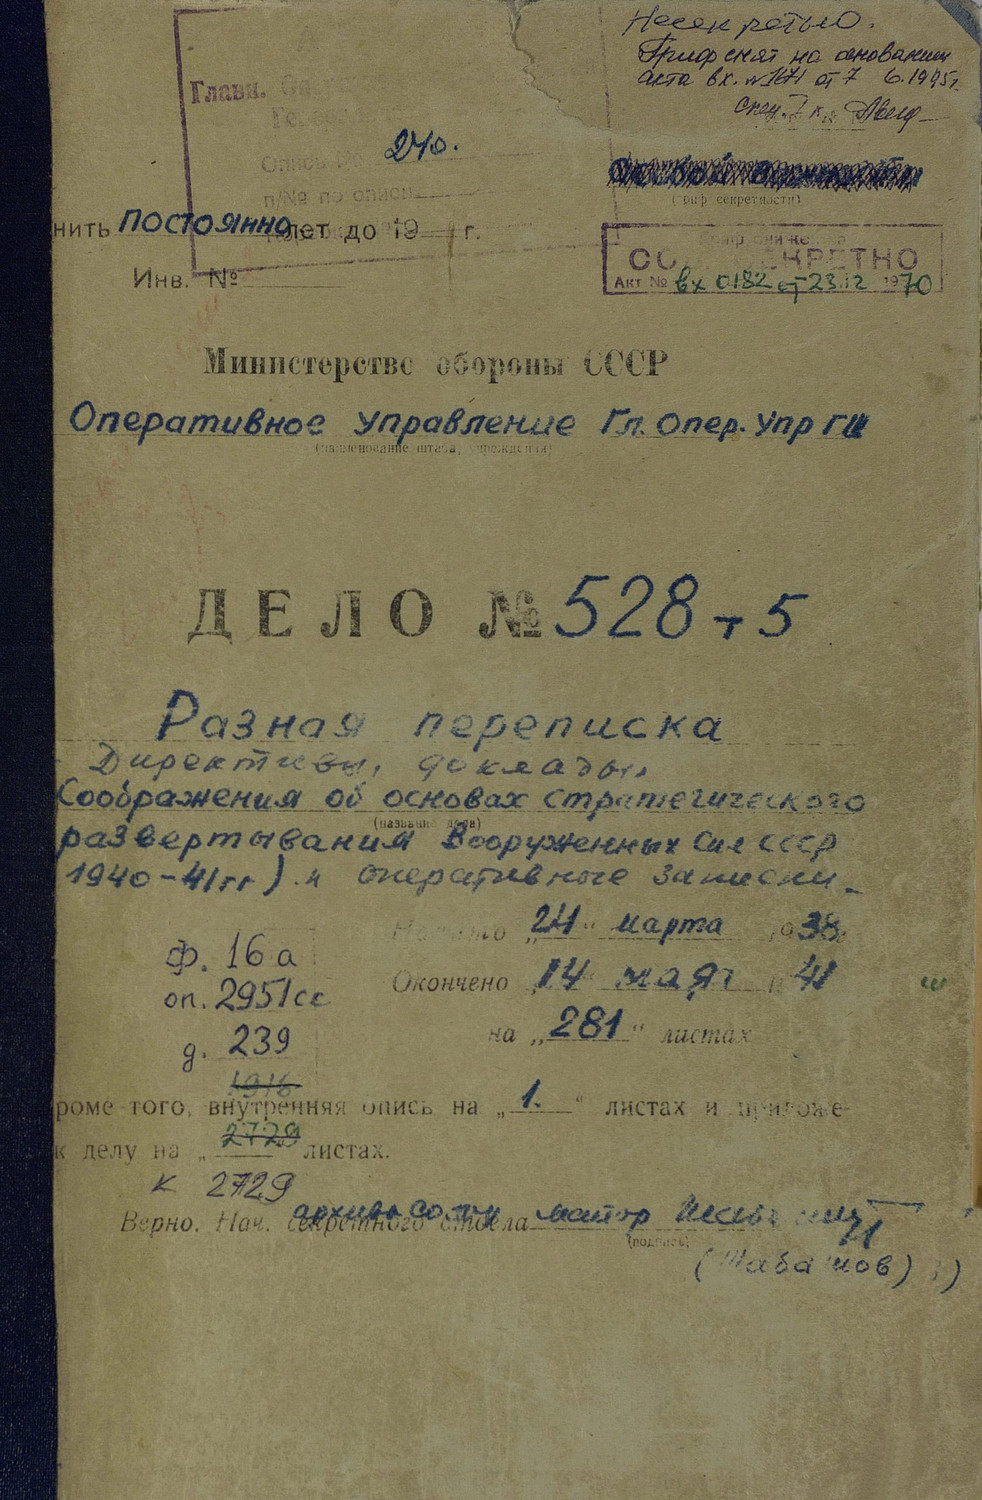 Несекретно.
Гриф снят на основании
акта вх. №1671 от 7 6.1995г.
Главн.
Опись № 240.
п/№ по описи
(гриф секретности)
нить ПОСТОЯННО лет до 19 г.
Инв. №
СОВ. СЕКРЕТНО
Акт № вх 0182 от 23.12 1970
Министерство обороны СССР
Оперативное управление Гл. Опер. Упр ГШ
(наименование штаба, учреждения)
ДЕЛО № 528 т 5
Разная переписка
Директивы, доклады,
Соображения об основах стратегического
(название дела)
развертывания Вооруженных Сил СССР
1940-41гг) и оперативные записки
Начато „24“ марта 38
ф. 16 а
Окончено „14 мая 41
оп. 2951сс
на „281“ листах
д. 239
1916
роме того, внутренняя опись на „1.“ листах и приложе-
2729
к делу на „ листах.
к 2729
Верно. Нач. секретного отдела майор
(подпись)